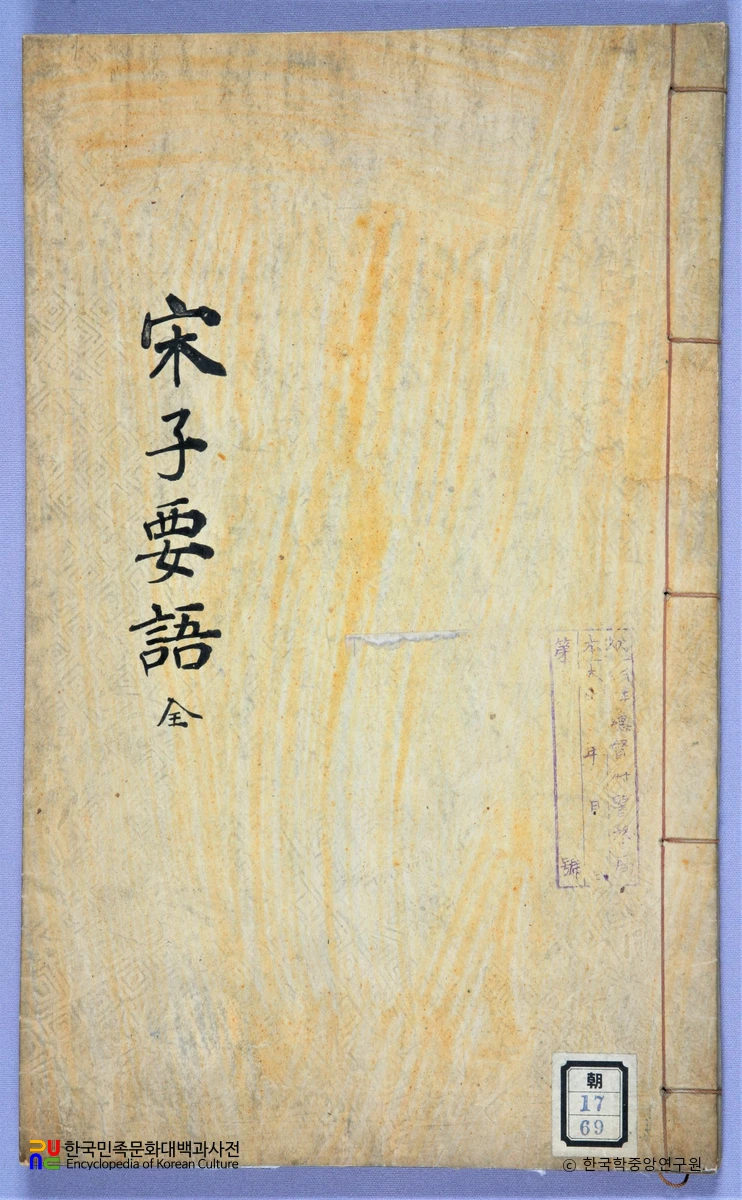 宋子要語 全
第 號
年 月
朝
17
69
한국민족문화대백과사전
Encyclopedia of Korean Culture
© 한국학중앙연구원